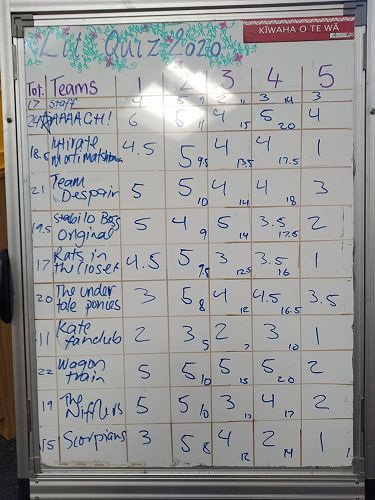 KĪWAHA O TE WĀ
Lit Quiz 2020
Tot. Teams 1 2 3 4 5
17 Staff 4 5 9 2 11 3 14 3
24 AAAAGH! 6 5 11 4 15 5 20 4
18.5 4.5 5 9.5 4 13.5 4 17.5 1
21 Team Despair 5 5 10 4 14 4 18 3
19.5 Stabilo Boss Original 5 4 9 5 14 3.5 17.5 2
17 Rats in the Closet 4.5 5 9.5 3 12.5 3.5 16 1
20 The under tale ponies 3 5 8 4 12 4.5 16.5 3.5
11 Kate fanclub 2 3 5 2 7 3 10 1
22 Wagon train 5 5 10 5 15 5 20 2
19 The Nifflers 5 5 10 3 13 4 17 2
15 Scorpians 3 5 8 4 12 2 14 1